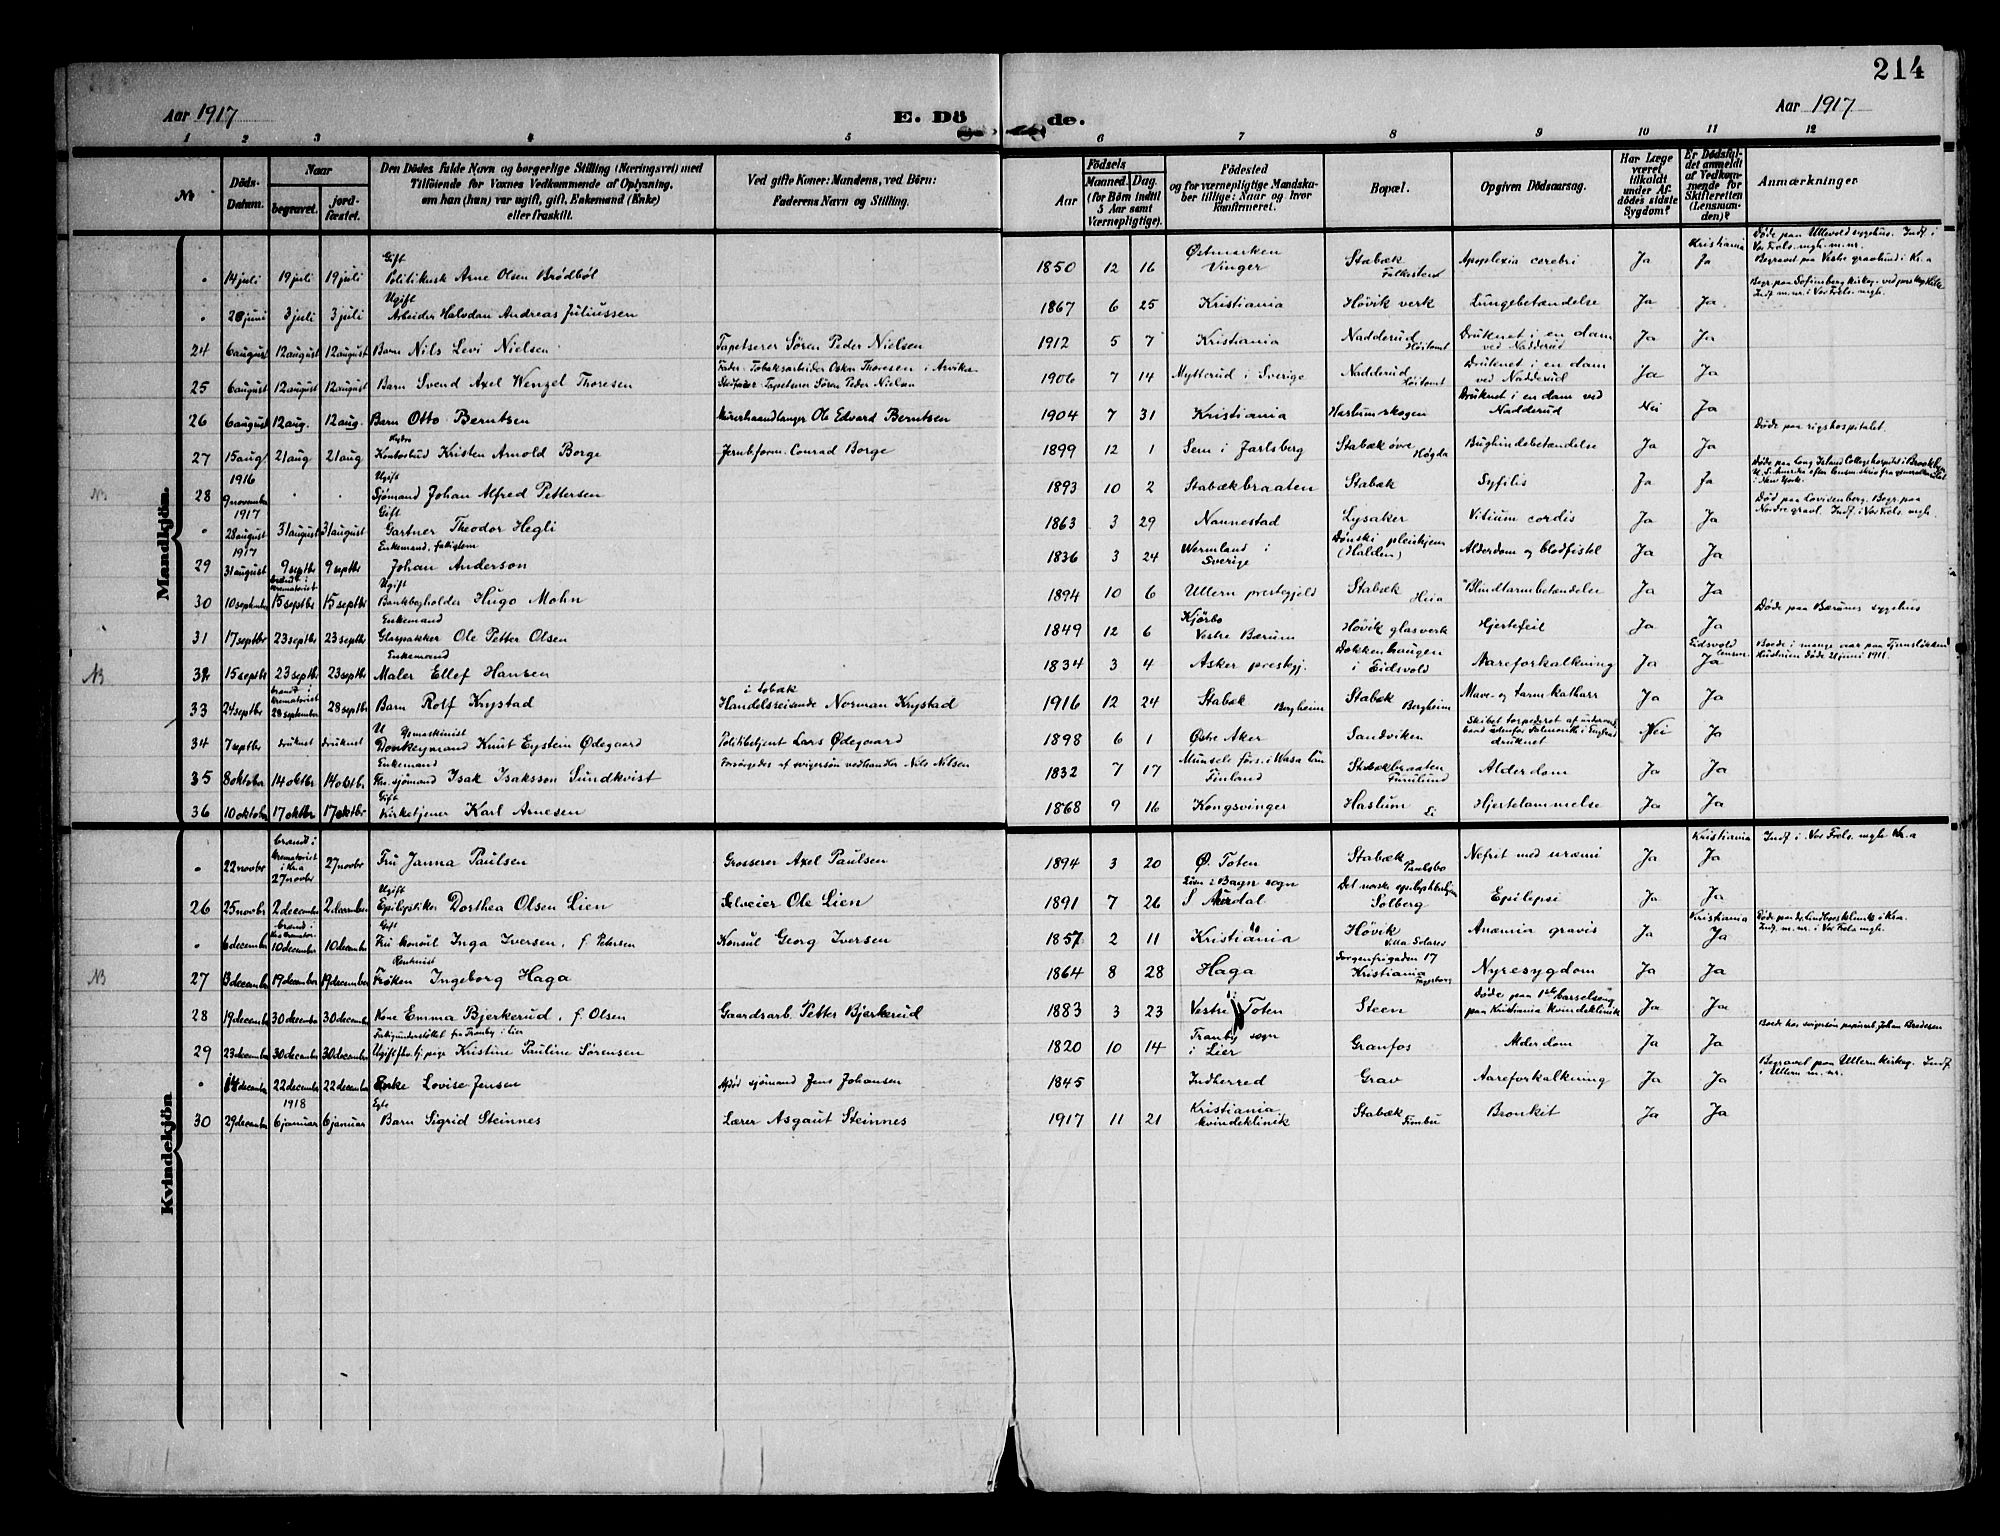 214
Aar 1917 E. Dö de. Aar 1917
1 2 3 4 5 6 7 8 9 10 11 12
Nr Döds-Datum. Naar begravet. jord-fæstet. Den Dödes fulde Navn og borgerlige Stilling (Næringsvei) med Tilföiende for Voxnes Vedkommende af Oplysning, om han (hun) var ugift, gift, Enkemand (Enke) eller fraskilt. Ved gifte Koner: Mandens, ved Börn: Faderens Navn og Stilling. Födsels Aar Maaned. Dag. (for Börn indtil 5 Aar samt Værnepligtige). Födested og for værnepligtige Mandskaber tillige: Naar og hvor konfirmeret. Bopæl. Opgiven Dödsaarsag. Har Læge været tilkaldt under Afdödes sidste Sygdom? Er Dödsfaldet anmeldt af Vedkommende for Skifteretten (Lensmanden)? Anmærkninger
Mandkjön.
" 14 juli 19 juli 19 juli Gift Politikusk Arne Olsen Brødbøl 1850 12 16 Østmarken Vinger Stabæk Falkestend Apoplexia cerebri Ja Kristiania Ja Døde paa Ullevold sygehus. Indf. i Vor Frels. mgh. m. nr. Begravet paa Vestre gravlund i Kr.a
" 28 juni 3 juli 3 juli Ugift Arbeider Halvdan Andreas Juliussen 1867 6 25 Kristiania Høvik verk Lungebetændelse Ja Ja Begr. paa Sofienberg kirkeg. ved Indf. m. nr. i Vor Frels. mgh.
24 6 august 12 august 12 august Barn Nils Levi Nielsen Tapetserer Søren Peder Nielsen 1912 5 7 Kristiania Nadderud Høitomt Druknet i en dam ved Nadderud Ja Ja
25 6 august 12 august 12 august Barn Svend Axel Wenzel Thoresen Fader: Tobaksarbeider Oskar Thoresen i Arvika Stedfader: Tapetserer Søren Peder Nielsen 1906 7 14 Mytterud i Sverige Nadderud Høitomt Druknet i en dam ved Nadderud Ja Ja
26 6 august 12 aug. 12 aug. Barn Otto Berntsen Murerhaandlanger Ole Edvard Berntsen 1904 7 31 Kristiania Haslumskogen Druknet i en dam ved Nadderud Nei Ja
27 15 aug 21 aug 21 aug Kontorbud Kristen Arnold Borge Jernbform. Conrad Borge 1899 12 1 Sem i Jarlsberg Stabæk øvre Høgda Bughindebetændelse Ja Ja Døde paa rigshospitalet.
NB 28 1916 9 november " " Ugift Sjømand Johan Alfred Pettersen 1893 10 2 Stabækbraaten Stabæk Syfilis Ja Ja Døde paa Long Island College hospital i Brooklyn U. S. Amerika efter
" 1917 28 august 31 august 31 august Gift Gartner Theodor Hegli 1863 3 29 Nannestad Lysaker Vitium cordis Ja Ja Død paa Lovisenberg. Begr. paa Nordre gravl. Indf. i Vor Frels. mgh.
29 1917 31 august 9 septbr 9 septbr Enkemand, fattiglem Johan Anderson 1836 3 24 Wermland i Sverige Dønski pleiehjem (Halden) Alderdom og blodfistel Ja Ja
30 10 september brændt i krematoriet 15 septbr 15 septbr Ugift Bankbogholder Hugo Mohn 1894 10 6 Ullern prestegjeld Stabæk Heia Blindtarmbetændelse Ja Ja
31 17 septbr 23 septbr 23 septbr Enkemand Glaspakker Ole Petter Olsen 1849 12 6 Kjørbo Vestre Bærum Høvik glasverk Hjertefeil Ja Ja Døde paa Bærums sygehus
NB 32 15 septbr 23 septbr 23 septbr Enkemand Maler Ellef Hansen 1834 3 4 Asker prestgj. Dokkenhaugen i Eidsvold Aareforkalkning Ja Eidsvold lensm. Ja Boede i mange aar paa Tjernsløkken Hustruen døde 21 juni 1911.
33 24 septbr brændt i krematoriet 28 september 28 septbr Barn Rolf Krystad Handelsreisende i tobak Norman Krystad 1916 12 24 Stabæk Bergheim Stabæk Bergheim Mave- og tarmkatharr Ja Ja
34 7 septbr druknet druknet U Donkeymand Knut Eystein Ødegaard Politibetjent Lars Ødegaard 1898 6 1 Østre Aker Sandviken Skibet torpederet af undervandsbaad udenfor Falmouth i England druknet Nei Ja
35 8 oktober 14 oktbr 14 oktbr Enkemand Fhv. sjømand Isak Isaksson Sundkvist Forsørgedes af svigersøn vedhandler Nils Nilsen 1832 7 17 Munsala førs. i Wasa län Finland Stabækbraaten Furulund Alderdom Ja Ja
36 10 oktober 17 oktbr 17 oktbr Gift Kirketjener Karl Arnesen 1868 9 16 Kongsvinger Haslum Li Hjertelammelse Ja Ja
Kvindekjön
" 22 novbr brændt i krematoriet i Kr.a 27 novbr 27 novbr Fru Janna Paulsen Grosserer Axel Paulsen 1894 3 20 Ø. Toten Stabæk Paulsbo Nefrit med uræmi Ja Kristiania Ja Indf. i Vor Frels. mgh. Kr.a
26 25 novbr 2 december 2 december Ugift Epileptiker Dorthea Olsen Lien Selveier Ole Lien 1891 7 26 Lien i Bagn sogn S. Aurdal Det norske epileptikerhjem Solberg Epilepsi Ja Ja
" 6 december brændt i Kra. Cremator. 10 december 10 december Gift Fru konsul Inga Iversen, f. Petersen Konsul Georg Iversen 1857 2 11 Kristiania Høvik Villa Solavei Anæmia gravis Ja Kristiania Ja Døde paa dr. Lindboes klinik i Kr.a. Indf. m. nr. i Vor Frels mgh.
NB 27 13 december 19 december 19 december Frøken Ingeborg Haga 1864 8 28 Haga Sorgenfrigaden 17 Kristiania Nyresygdom Ja Ja
28 19 december 30 december 30 december Kone Emma Bjerkerud, f. Olsen Gaardsarb. Petter Bjerkerud 1883 3 23 Vestre Toten Steen Døde paa 1ste barselseng paa Kristiania Kvindeklinik Ja Ja
29 23 december 30 december 30 december Fattigunderstøttet fra Tranby i Lier Ugift fhv. tj. pige Kristine Pauline Sørensen 1820 10 14 Tranby sogn i Lier Granfos Alderdom Ja Ja Boede hos svigersøn papirarb. Johan Bredesen
" 14 december 22 december 22 december Enke Lovise Jensen Afdød sjømand Jens Johansen 1845 Indherred Grav Aareforkalkning Ja Ja Begravet paa Ullern kirkeg. Indf. i Ullern m. nr.
30 29 december 1918 6 januar 6 januar Egte Barn Sigrid Steinnes Lærer Asgaut Steinnes 1917 11 21 Kristiania kvindeklinik Stabæk Fimbu Bronkit Ja Ja